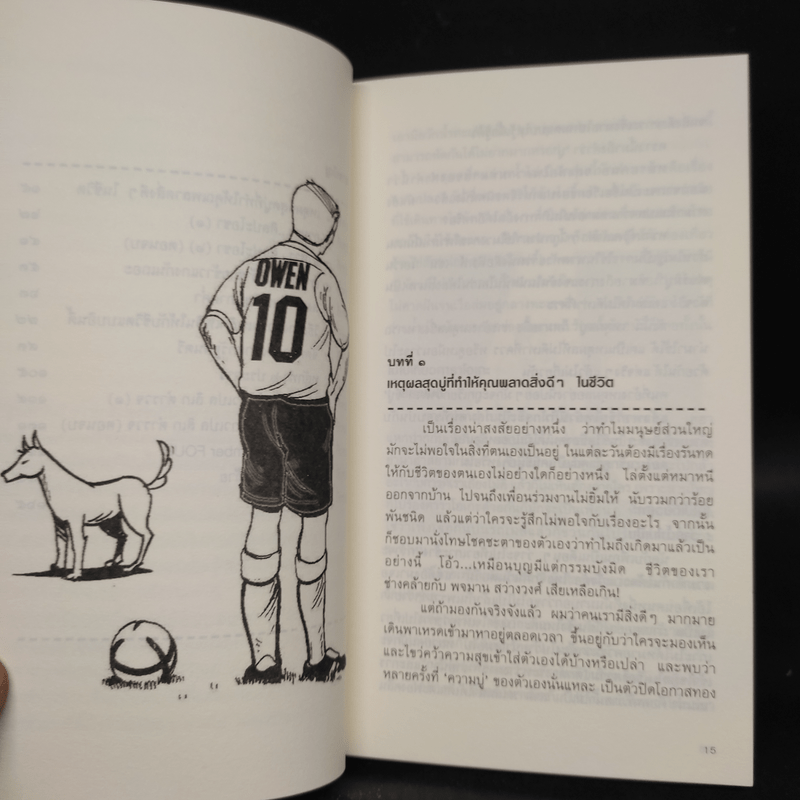 OWEN
10
บทที่ ๑
เหตุผลสุดบู่ที่ทำให้คุณพลาดสิ่งดีๆ ในชีวิต
เป็นเรื่องน่าสงสัยอย่างหนึ่ง ว่าทำไมมนุษย์ส่วนใหญ่
มักจะไม่พอใจในสิ่งที่ตนเองเป็นอยู่ ในแต่ละวันต้องมีเรื่องรันทด
ให้กับชีวิตของตนเองไม่อย่างใดก็อย่างหนึ่ง ไล่ตั้งแต่หมาหนี
ออกจากบ้าน ไปจนถึงเพื่อนร่วมงานไม่ยิ้มให้ นับรวมกว่าร้อย
พันชนิด แล้วแต่ว่าใครจะรู้สึกไม่พอใจกับเรื่องอะไร จากนั้น
ก็ชอบมานั่งโทษโชคชะตาของตัวเองว่าทำไมถึงเกิดมาแล้วเป็น
อย่างนี้ โอ้ว...เหมือนบุญมีแต่กรรมบังมิด ชีวิตของเรา
ช่างคล้ายกับ พจมาน สว่างวงศ์ เสียเหลือเกิน!
แต่ถ้ามองกันจริงจังแล้ว ผมว่าคนเรามีสิ่งดีๆ มากมาย
เดินพาเหรดเข้ามาหาอยู่ตลอดเวลา ขึ้นอยู่กับว่าใครจะมองเห็น
และไขว่คว้าความสุขเข้าใส่ตัวเองได้บ้างหรือเปล่า และพบว่า
หลายครั้งที่ 'ความบู่' ของตัวเองนั่นแหละ เป็นตัวปิดโอกาสทอง
15